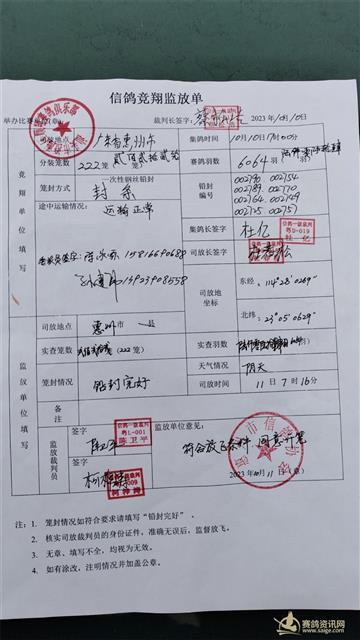 信鸽竞翔监放单
举办比赛 章：
裁判长签字：
2023年10月10日
竞翔单位填写
司放地点 广东省惠州市
集鸽时间 10月10日17时00分
分装笼数 222笼 贰佰贰拾贰笼
赛鸽羽数 6064羽
笼封方式 一次性钢丝铅封 封条
铅封编号
002790 002754
002789 002770
002764 002749
002725 002757
途中运输情况： 运输正常
集鸽长签字 杜亿
司放长签字
签字： 15816690680
13923908558
司放地坐标
东经： 114°28′0269″
北纬： 23°05′0629″
监放单位填写
司放地点 惠州市 县
实查笼数 (222笼)
实查羽数
天气情况 阴天
笼封情况 铅封完好
司放时间 11日7时16分
备注
监放裁判员
签字 陈卫平
签字
监放单位意见：
符合放飞条件 同意开笼
2023年10月11日（章）
注：1. 笼封情况如符合要求请填写“铅封完好”。
2. 核实司放裁判员的身份证件，准确无误后，监督放飞。
3. 无章、填写不全，均视为无效。
4. 如有涂改，注明情况并加盖公章。
赛鸽资讯网
www.saige.com